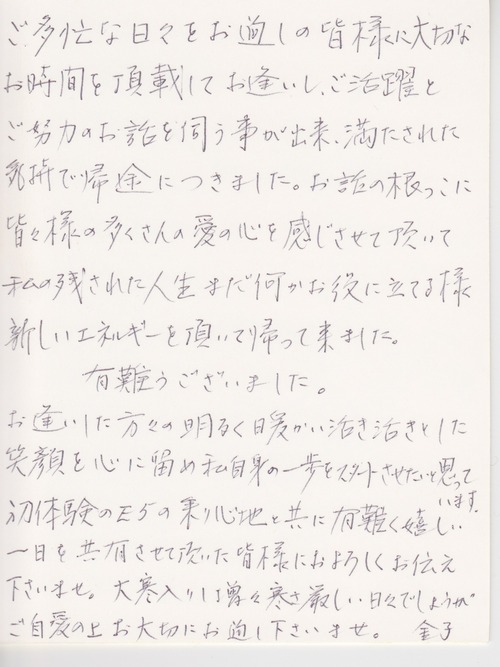 ご多忙な日々をお過しの皆様に大切な
お時間を頂載してお逢いし、ご活躍と
ご努力のお話を伺う事が出来、満たされた
気持で帰途につきました。お話の根っこに
皆々様の多くさんの愛の心を感じさせて頂いて
私の残された人生まだ何かお役に立てる様
新しいエネルギーを頂いて帰って来ました。
有難うございました。
お逢いした方々の明るく暖かい活き活きとした
笑顔を心に留め私自身の一歩をスタートさせたいと思って
います。
初体験のE5の乗り心地と共に有難く嬉しい
一日を共有させて頂いた皆様によろしくお伝え
下さいませ。大寒入りは曽々寒さ厳しい日々でしょうが
ご自愛の上お大切にお過し下さいませ。 金子